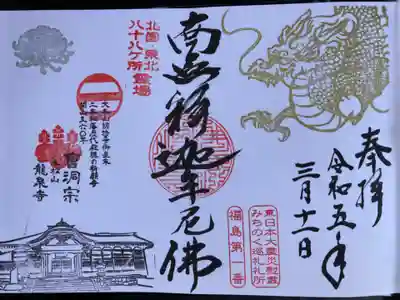 奉拝
令和五年
三月十一日
南無釈迦牟尼佛
北国・東北
八十八ヶ所霊場
曹洞宗
龍泉寺
東日本大震災慰霊
みちのく巡礼札所
福島第一番